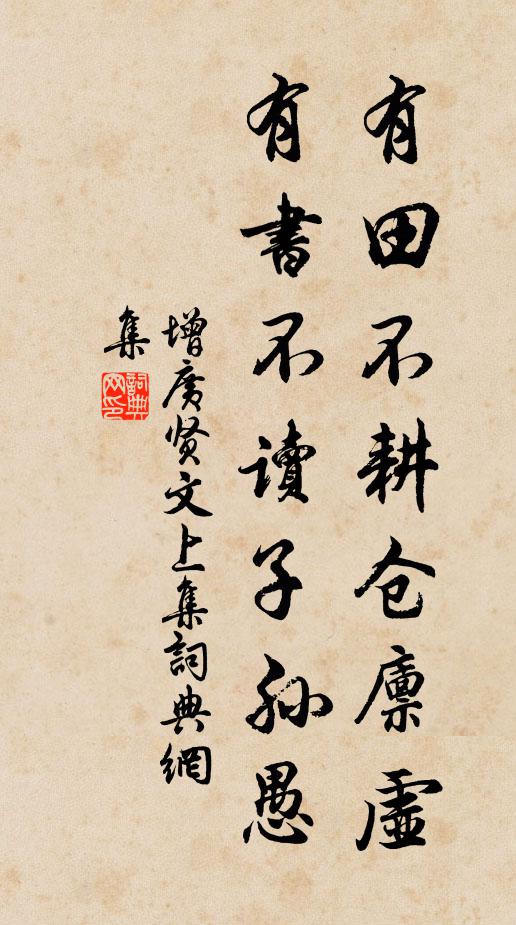 有田不耕仓廪虚
有書不读子孙愚
增广贤文上集詞典網
集
詞典
网印